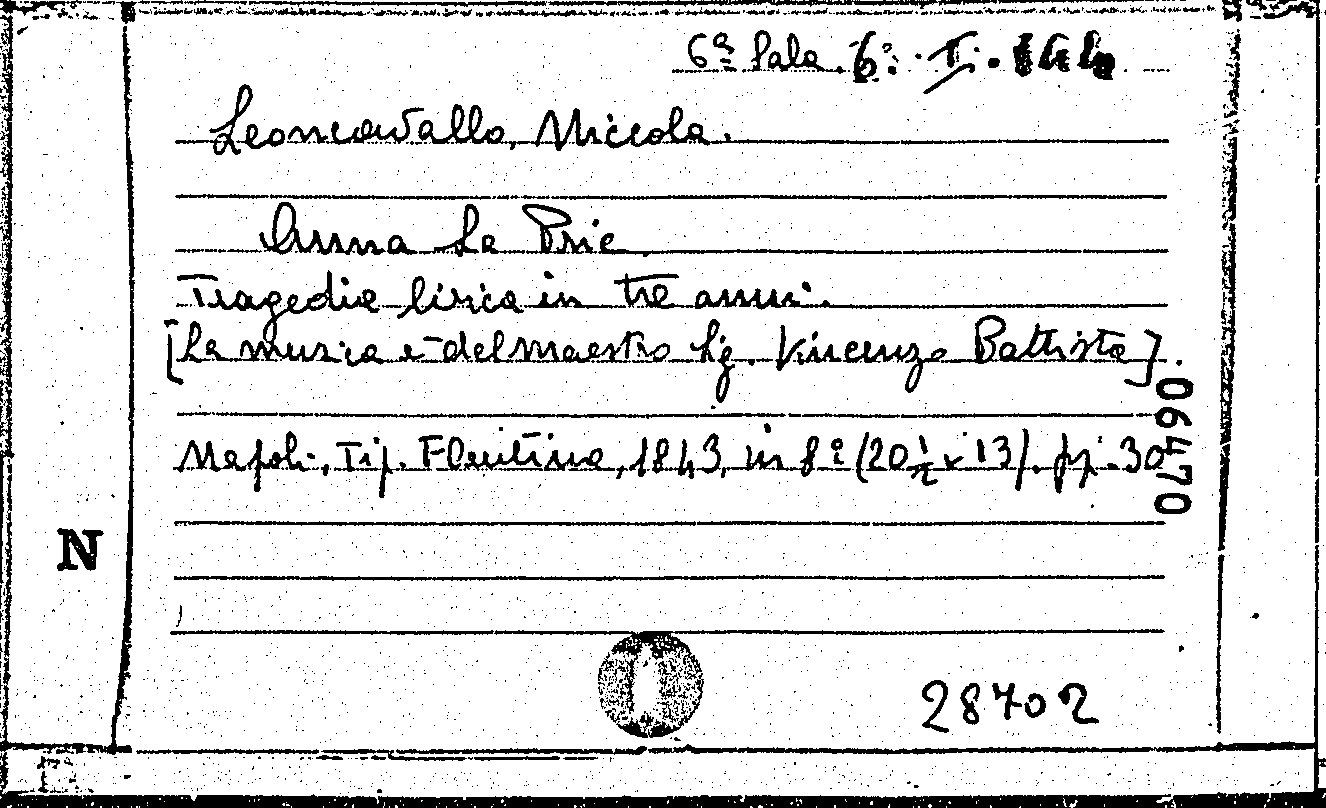 6ª Sala. 6.
Leoncavallo, Niccola.
Anna La Prie
Tragedia lirica in tre annui.
[La musica è del Maestro Sig. Vincenzo Battista].
Napoli, Tip. Flautina, 1843, in 8º (20½ x 13). pp. 30
06470
N
28702